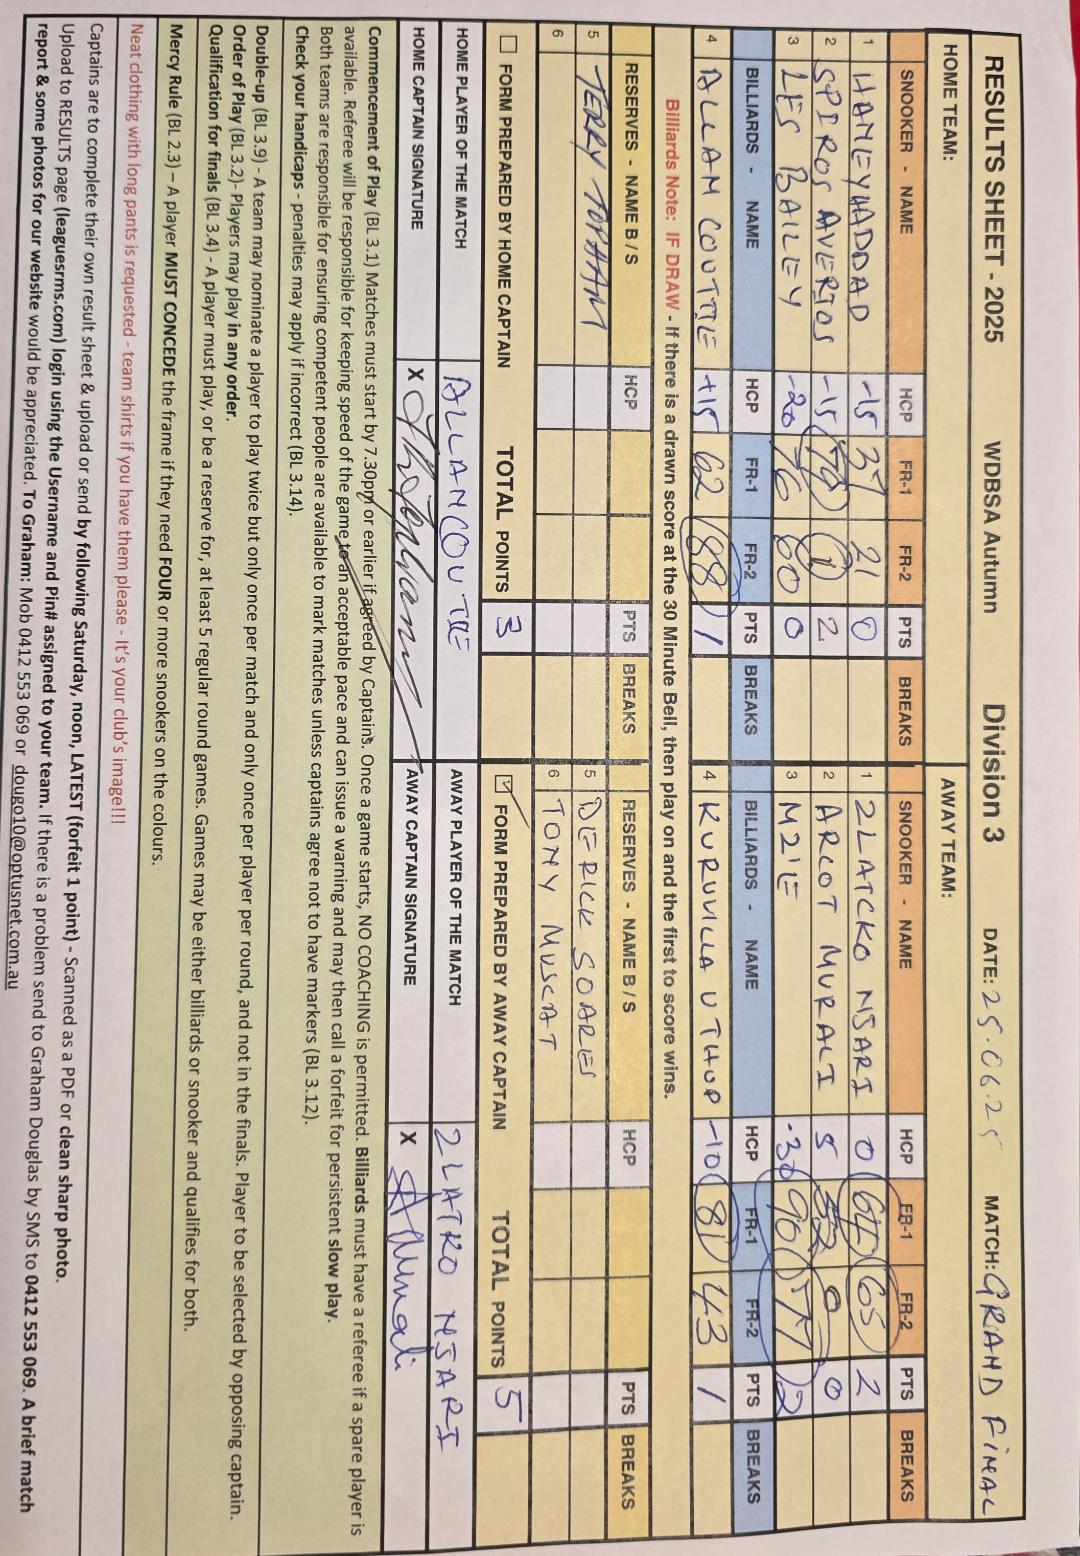 RESULTS SHEET - 2025 WDBSA Autumn Division 3 DATE: 25.06.25 MATCH: GRAND FINAL
HOME TEAM: AWAY TEAM:
SNOOKER - NAME HCP FR-1 FR-2 PTS BREAKS SNOOKER - NAME HCP FR-1 FR-2 PTS BREAKS
1 HANEY HADDAD -15 37 21 0 1 ZLATCKO NSARI 0 64 65 2
2 SPIROS AVERIOS -15 1 2 2 ARCOT MURALI 5 0 0
3 LES BAILEY -20 76 60 0 3 MZ'E -30 90 77 2
BILLIARDS - NAME HCP FR-1 FR-2 PTS BREAKS BILLIARDS - NAME HCP FR-1 FR-2 PTS BREAKS
4 ALLAN COUTTIE +15 62 88 1 4 KURUVILLA UTHUP -10 81 43 1
Billiards Note: IF DRAW - If there is a drawn score at the 30 Minute Bell, then play on and the first to score wins.
RESERVES - NAME B / S HCP PTS BREAKS RESERVES - NAME B / S HCP PTS BREAKS
5 TERRY TOPHAM 5 DERICK SOARES
6 6 TONY MUSCAT
☐ FORM PREPARED BY HOME CAPTAIN TOTAL POINTS 3 ☑ FORM PREPARED BY AWAY CAPTAIN TOTAL POINTS 5
HOME PLAYER OF THE MATCH ALLAN COUTTIE AWAY PLAYER OF THE MATCH ZLATKO NSARI
HOME CAPTAIN SIGNATURE X AWAY CAPTAIN SIGNATURE X
Commencement of Play (BL 3.1) Matches must start by 7.30pm or earlier if agreed by Captains. Once a game starts, NO COACHING is permitted. Billiards must have a referee if a spare player is
available. Referee will be responsible for keeping speed of the game to an acceptable pace and can issue a warning and may then call a forfeit for persistent slow play.
Both teams are responsible for ensuring competent people are available to mark matches unless captains agree not to have markers (BL 3.12).
Check your handicaps - penalties may apply if incorrect (BL 3.14).
Double-up (BL 3.9) - A team may nominate a player to play twice but only once per match and only once per player per round, and not in the finals. Player to be selected by opposing captain.
Order of Play (BL 3.2)- Players may play in any order.
Qualification for finals (BL 3.4) - A player must play, or be a reserve for, at least 5 regular round games. Games may be either billiards or snooker and qualifies for both.
Mercy Rule (BL 2.3) – A player MUST CONCEDE the frame if they need FOUR or more snookers on the colours.
Neat clothing with long pants is requested - team shirts if you have them please - It's your club's image!!!
Captains are to complete their own result sheet & upload or send by following Saturday, noon, LATEST (forfeit 1 point) - Scanned as a PDF or clean sharp photo.
Upload to RESULTS page (leaguesrms.com) login using the Username and Pin# assigned to your team. If there is a problem send to Graham Douglas by SMS to 0412 553 069. A brief match
report & some photos for our website would be appreciated. To Graham: Mob 0412 553 069 or dougo10@optusnet.com.au